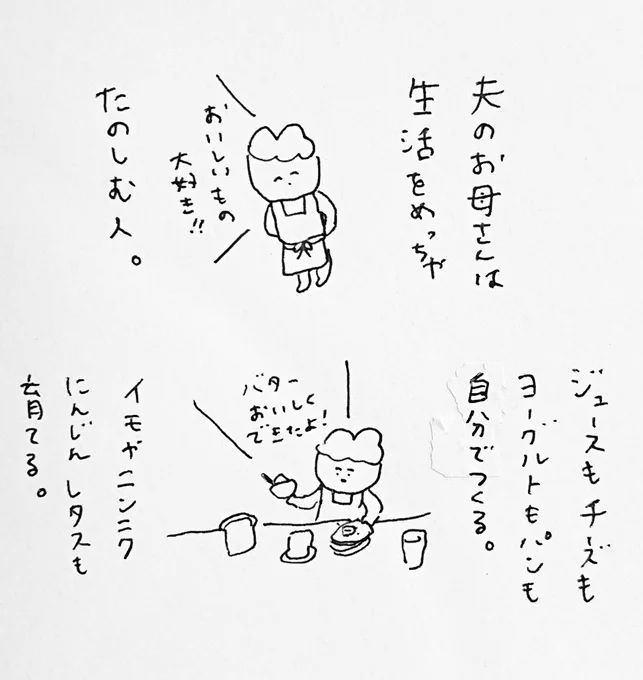 夫のお母さんは
生活をめっちゃ
おいしいもの
大好き!!
たのしむ人。
ジュースもチーズも
ヨーグルトもパンも
自分でつくる。
バター
おいしく
できたよ!
イモやニンニク
にんじんレタスも
育てる。